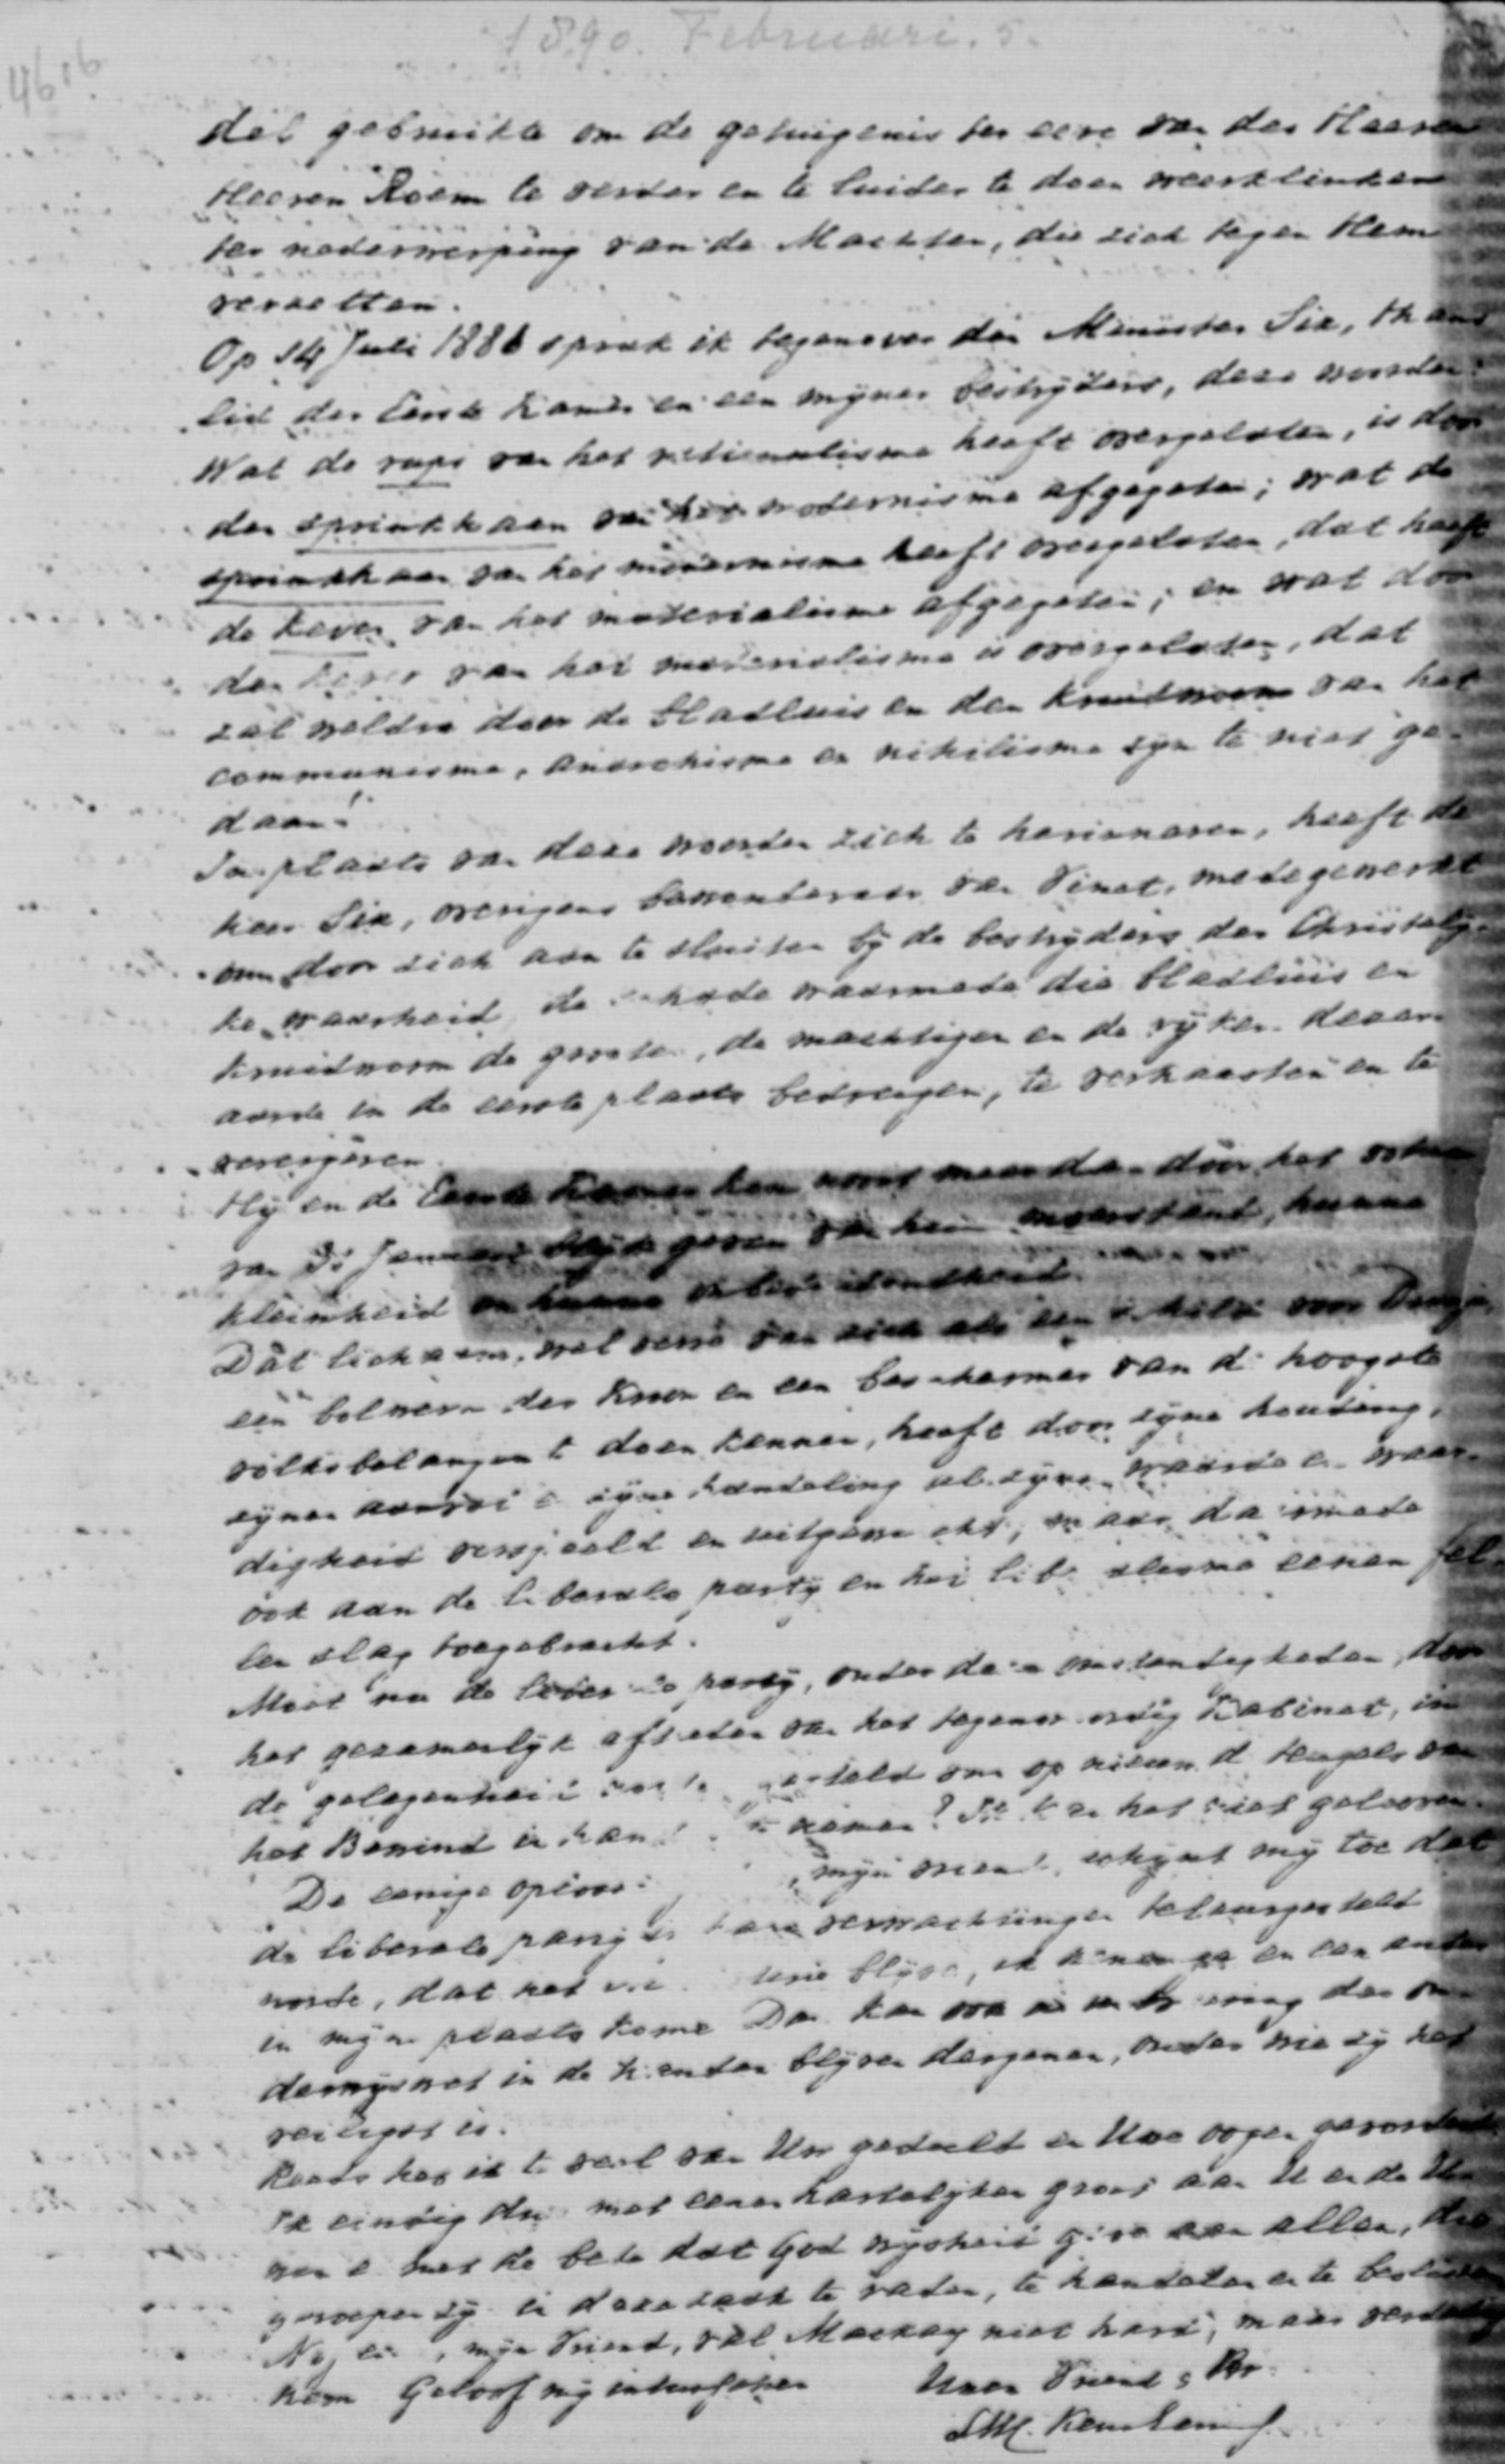 1890. Februari. 5.
4616
dit gebruikte om de getuigenis ter eere van des Heeren
Heeren Roem te verder en te luider te doen weerklinken
ter nederwerping van de Machten, die zich tegen Hem
verzetten.
Op 14 Juli 1881 sprak ik tegenover den Minister Six, thans
lid der Eerste Kamer en een mijner bestrijders, deze woorden:
Wat de rups van het rationalisme heeft overgelaten, is door
den sprinkhaan van het modernisme afgegeten; wat de
sprinkhaan van het modernisme heeft overgelaten, dat heeft
de kever van het materialisme afgegeten; en wat door
den kever van het materialisme is overgelaten, dat
zal weldra door de bladluis en den kruidworm van het
communisme, anarchisme en nihilisme zyn te niet ge-
daan!
In plaats van deze woorden zich te herinneren, heeft de
heer Six, overigens bewonderaar van Vinet, medegewerkt
om door zich aan te sluiten by de bestryders der Christely-
ke waarheid, de schade waarmede die bladluis en
kruidworm de grooten, de machtigen en de ryken dezer
aarde in de eerste plaats bedreigen, te verhaasten en te
verergeren.
Hy en de Eerste Kamer
van Januari blyk geven van hun onverstand, hunne
kleinheid en hunne
Dat lichaam, wel verre van zich als een schild voor Oranje,
een bolwerk der Kroon en een beschermer van de hoogste
volksbelangen te doen kennen, heeft door zyne houding,
zynen aanval en zyne handeling al zyne waarde en waar-
digheid verspeeld en uitgewischt, maar daarmede
ook aan de liberale party en het liberalisme eenen fel-
len slag toegebracht.
Moet nu de liberale party, onder deze omstandigheden, door
het gezamenlyk aftreden van het tegenwoordig Kabinet, in
de gelegenheid gesteld om op nieuw de teugels van
het Bewind in handen te nemen? Ik kan het niet gelooven.
De eenige oplossing, myn vriend, schynt my toe dat
de liberale party in hare verwachtingen teleurgesteld
worde, dat het blyve, ik heenga en een ander
in myne plaats kome. Dan kan ook de uitvoering der on-
derwyswet in de handen blyven dergenen, onder wie zy het
veiligst is.
Reeds heb ik te veel van Uw geduld en Uwe oogen gevorderd.
Ik eindig dus met eenen hartelyken groet aan U en de Uwen
en met de bede dat God wysheid geve aan allen, die
geroepen zyn in deze zaak te raden, te handelen en te beslissen.
myn Vriend, val Mackay niet hard, maar verdedig
hem. Geloof my intusschen Uwen Vriend & Br.
L.W.C. Keuchenius